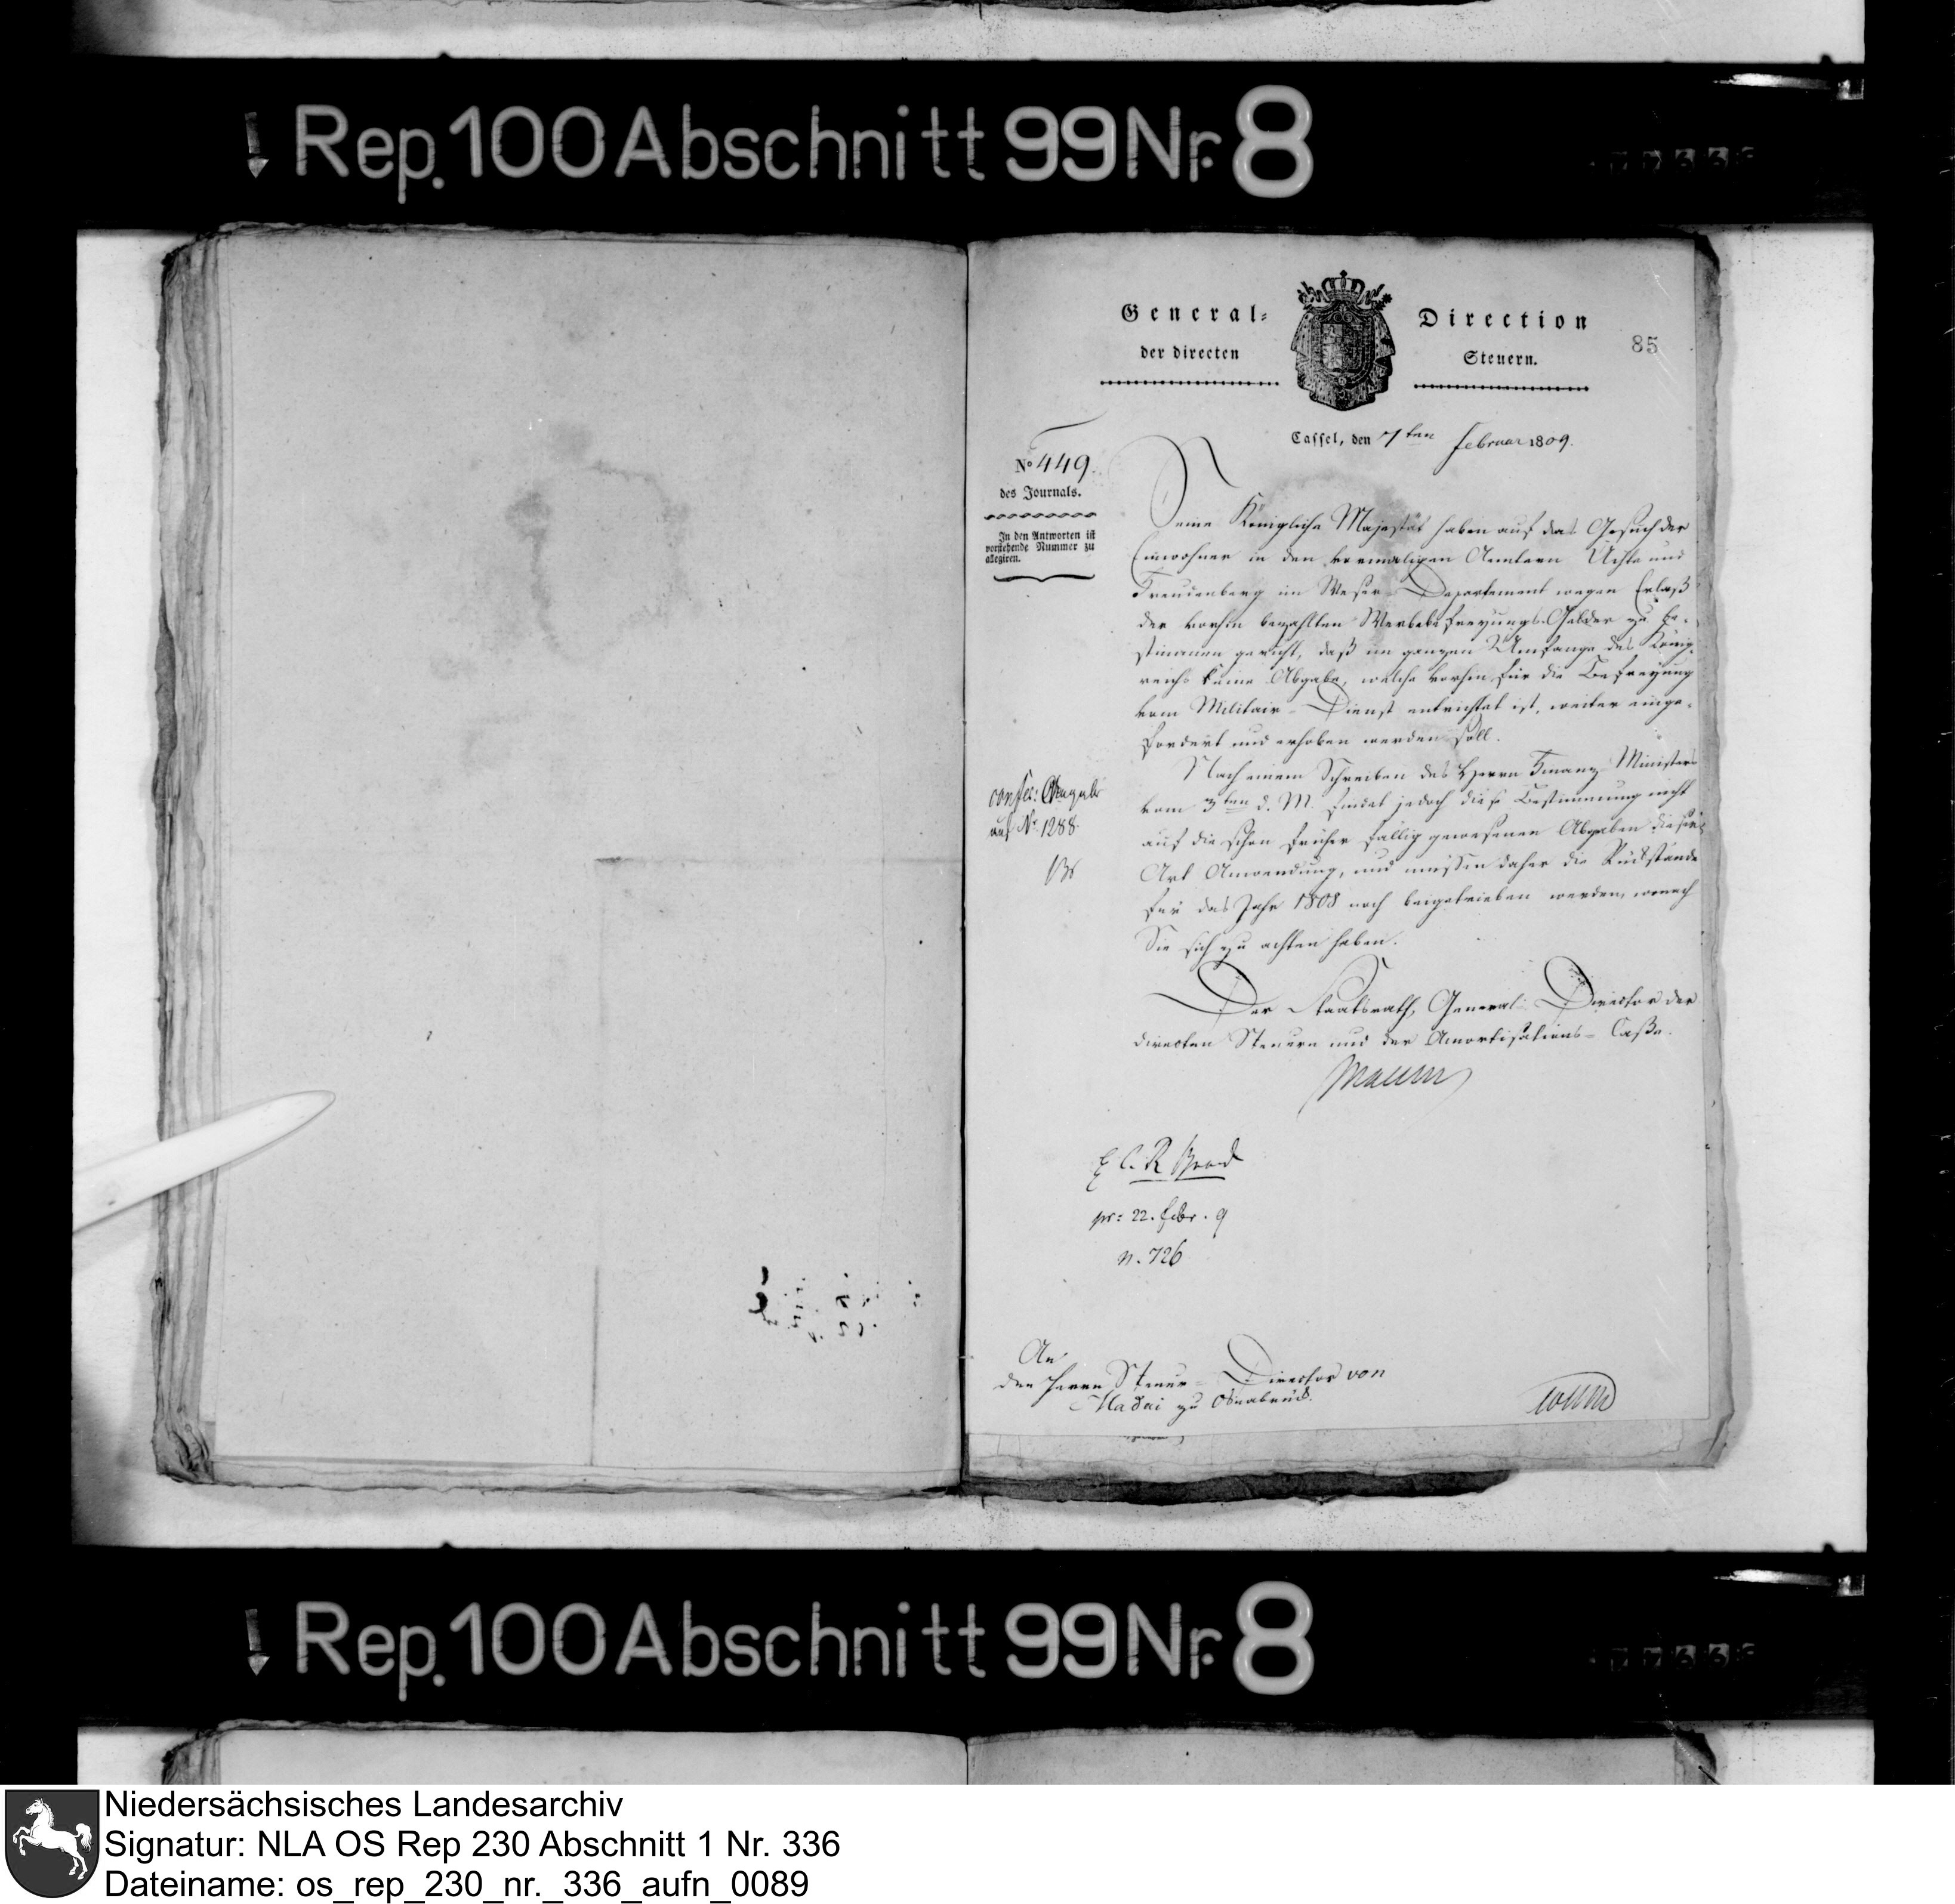 Rep. 100 Abschnitt 99 Nr. 8
General- Direction
der directen Steuern.
85
Cassel, den 7ten Februar 1809.
No 449.
des Journals.
In den Antworten ist
vorstehende Nummer zu
allegiren.
Seine Königliche Majestät haben auf das Gesuch der
Einwohner in den vormaligen Aemtern Uchte und
Freudenberg im Weser-Departement wegen Erlaß
der vorhin bezahlten Werbebefreyungs-Gelder zu be-
stimmen geruht, daß im ganzen Umfange des König-
reichs keine Abgabe, welche vorhin für die Befreyung
vom Militair-Dienst entrichtet ist, weiter einge-
fordert und erhoben werden soll.
Nach einem Schreiben des Herrn Finanz Ministers
vom 3ten d. M. findet jedoch diese Bestimmung nicht
auf die schon früher fällig gewesenen Abgaben dieser
Art Anwendung, und müssen daher die Rückstände
für das Jahr 1808 noch beigetrieben werden, wonach
Sie sich zu achten haben.
auf No 1288.
Der Staatsrath, General-Director der
directen Steuern und der Amortisations-Caße.
pr: 22. Febr. 9
n. 726
An
den Herrn Steuer-Director von
Madai zu Osnabrück.
Rep. 100 Abschnitt 99 Nr. 8
Niedersächsisches Landesarchiv
Signatur: NLA OS Rep 230 Abschnitt 1 Nr. 336
Dateiname: os_rep_230_nr._336_aufn_0089